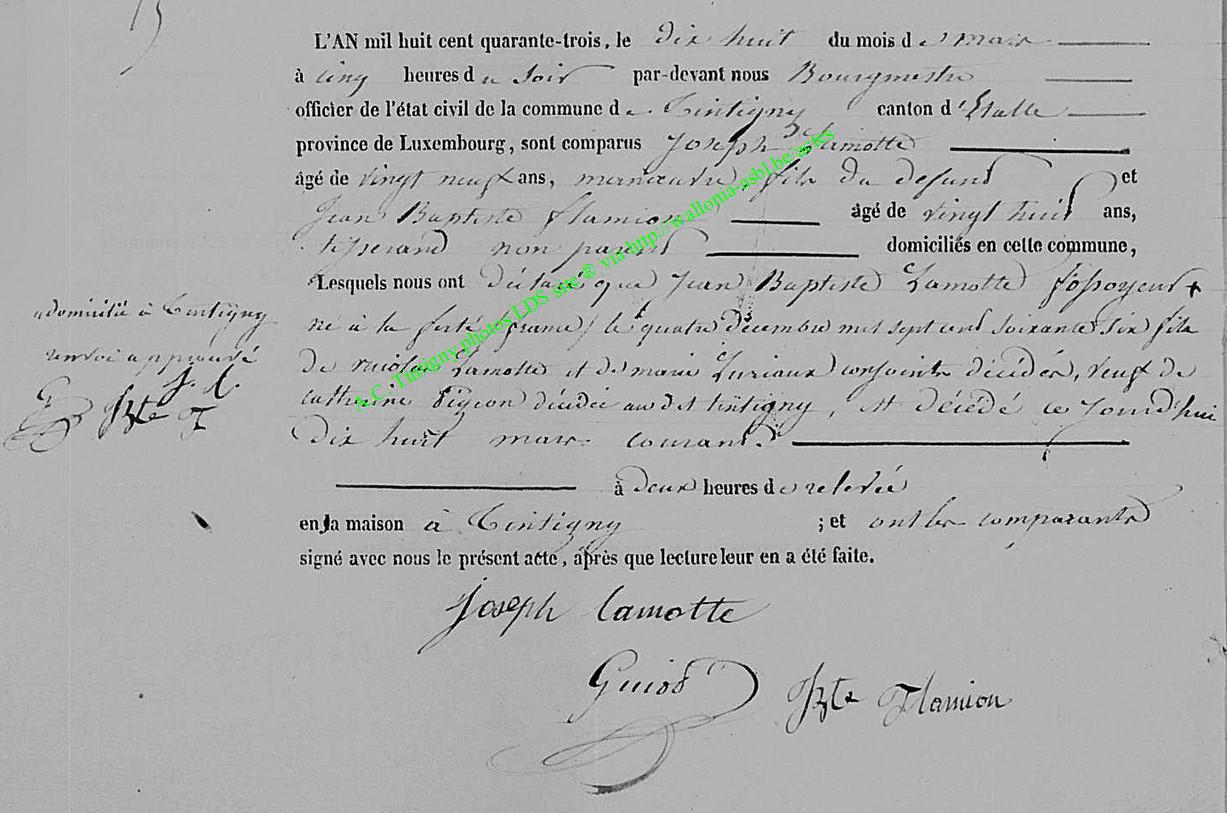 15
L'AN mil huit cent quarante-trois, le dix huit du mois de mars
à cinq heures du soir par-devant nous Bourgmestre
officier de l'état civil de la commune de Tintigny canton d'Etalle
province de Luxembourg, sont comparus Joseph Lamotte
âgé de vingt neuf ans, manœuvre, fils du defunt et
Jean Baptiste flamion âgé de vingt huit ans,
tisserand non parent domiciliés en cette commune,
Lesquels nous ont déclaré que Jean Baptiste Lamotte fossoyeur +
né à la ferté (france) le quatre décembre mil sept cent soixante six fils
de nicolas Lamotte et de marie Luriaux conjoints décédés, veuf de
catherine Pigeon décédée au dit tintigny est décédé ce jourd'hui
dix huit mars courant.
à deux heures de relevée
en la maison à Tintigny ; et ont les comparants
signé avec nous le présent acte, après que lecture leur en a été faite.
Joseph Lamotte
Guiot
Bte Flamion
+ domicilié à Tintigny
renvoi approuvé
J. L.
G Bte F
A.C. Tintigny photos LDS site ® via http://wallonia-asbl.be/actes